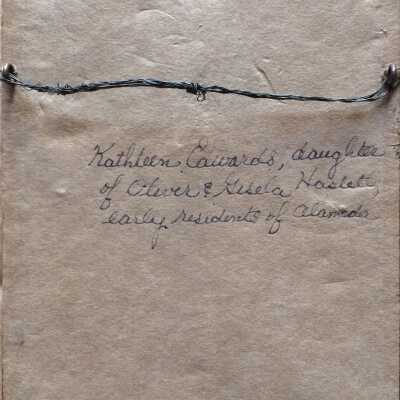 Kathleen Edwards, daughter
of Oliver & Gisela Haslett,
early residents of Alameda